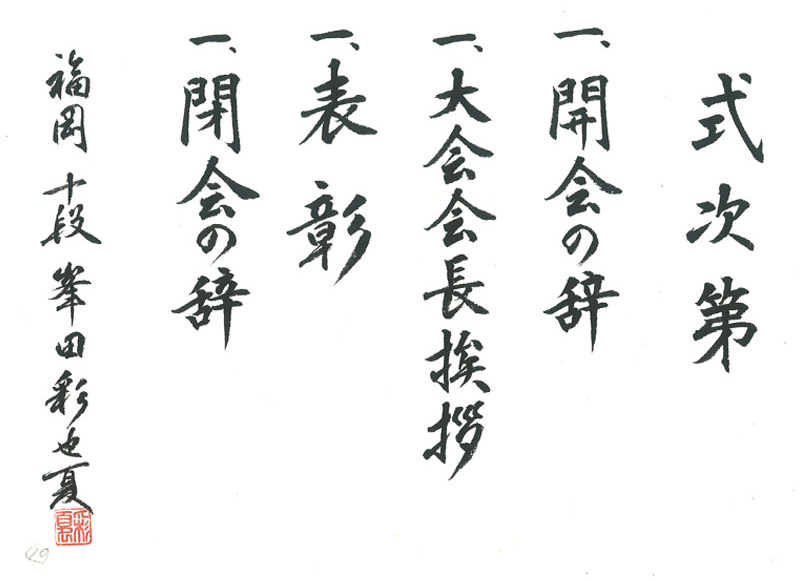 式次第
一、開会の辞
一、大会会長挨拶
一、表彰
一、閉会の辞
福岡 十段 峯田彩也夏
彩夏
19